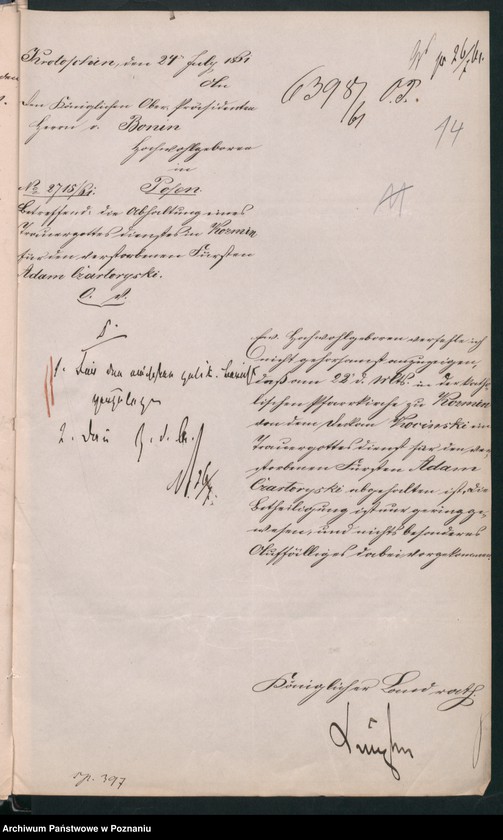 Krotoschin, den 24t July 1861
pr 26/7 61.
6398/61 O.P.
14
An
den Königlichen Ober-Präsidenten
Herrn v. Bonin
Hochwohlgeboren
in
Posen
No 2715/61.
Betreffend die Abhaltung eines
Trauergottesdienstes in Kozmin
für den verstorbenen Fürsten
Adam Czartoryski.
Ew. Hochwohlgeboren verfehle ich
nicht gehorsamst anzuzeigen,
daß am 22 d. Mts. in der katho-
lischen Pfarrkirche zu Kozmin
von dem Dekan ein
Trauergottesdienst für den ver-
storbenen Fürsten Adam
Czartoryski abgehalten ist, die
Betheiligung ist nur gering ge-
wesen, und nichts besonderes
Auffälliges dabei vorgekommen.
1. den
2. Dann z. d. A.
26/7.
Königlicher Landrath.
rp. 397
Archiwum Państwowe w Poznaniu